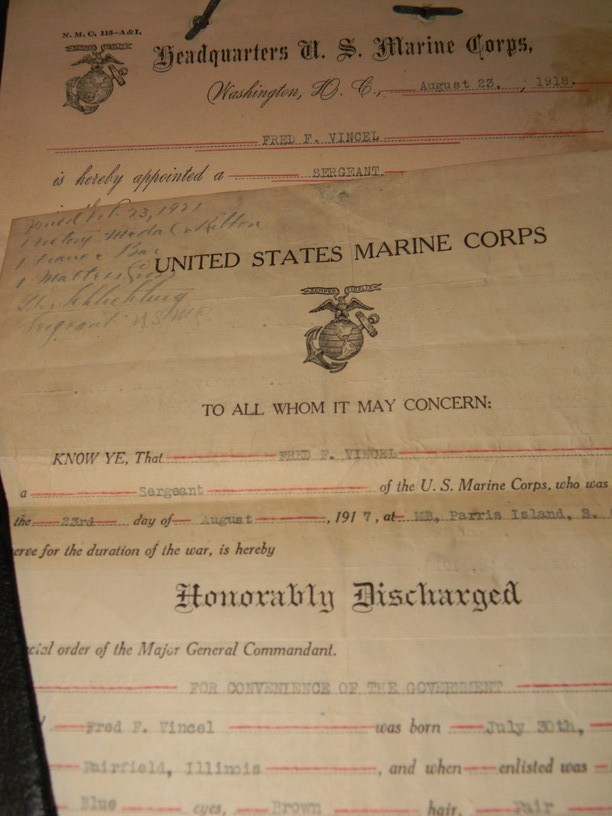 N. M. C. 118-A&I.
Headquarters U. S. Marine Corps,
Washington, D. C., August 23, , 1918.
FRED F. VINCEL
is hereby appointed a SERGEANT
23, 1921
Victory Medal & Ribbon
1 Bar
Sergeant USMC
UNITED STATES MARINE CORPS
TO ALL WHOM IT MAY CONCERN:
KNOW YE, That FRED F. VINCEL
a Sergeant of the U. S. Marine Corps, who was
the 23rd day of August , 1917, at MB, Parris Island, S.
erve for the duration of the war, is hereby
Honorably Discharged
cial order of the Major General Commandant.
FOR CONVENIENCE OF THE GOVERNMENT
Fred F. Vincel was born July 30th,
Fairfield, Illinois , and when enlisted was
Blue eyes, Brown hair, Fair